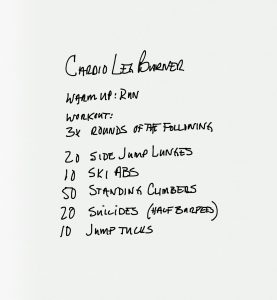 CARDIO LEG BURNER
WARM UP: RUN
WORKOUT:
3X ROUNDS OF THE FOLLOWING
20 SIDE JUMP LUNGES
10 SKI ABS
50 STANDING CLIMBERS
20 SUICIDES (HALF BURPEES)
10 JUMP TUCKS